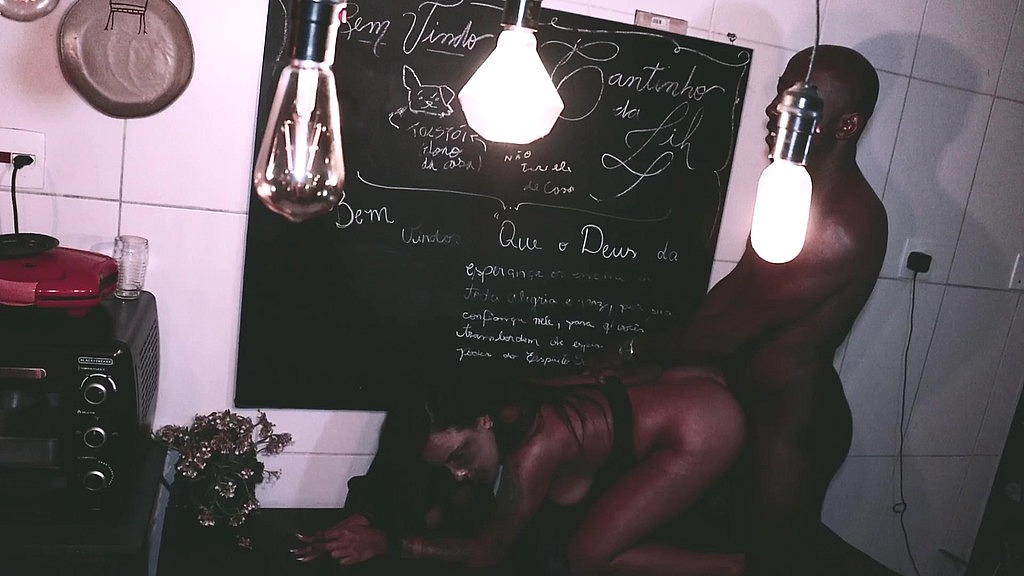 Bem Vindo
Cantinho
da
Lih
TOLSTOI
(dono
da casa)
NÃO
da Casa
Bem
Vindos
"Que o Deus da
esperança os encha
toda alegria e paz, por sua
confiança nele, para q vocês
transbordem de
poder do Espírito
BLACK+DECKER